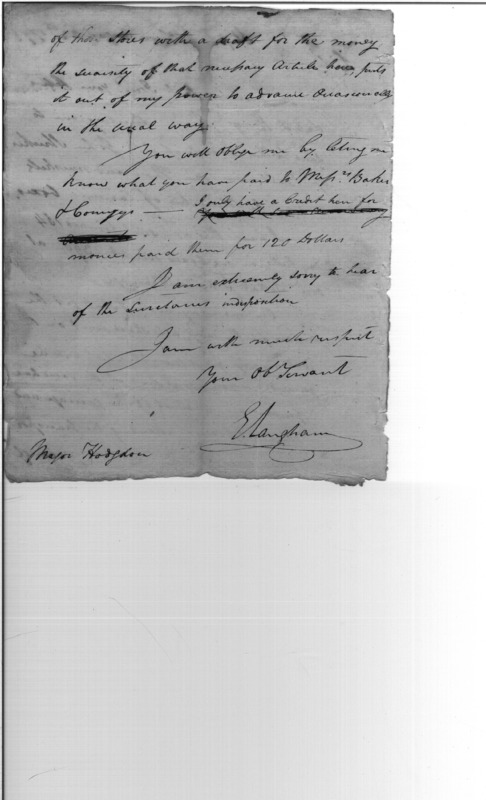 of those Stores with a draft for the money
the scarcity of that necessary Article here puts
it out of my power to advance occasionally
in the usual way.
You will oblige me by leting me
know what you have paid to Messrs Baker
& Comygs — I only have a Credit here for
monies paid them for 120 Dollars
I am extremely sorry to hear
of the Secretaries indisposition
I am with much respect
Your Ob Servant
E. Langham
Major Hodgdon